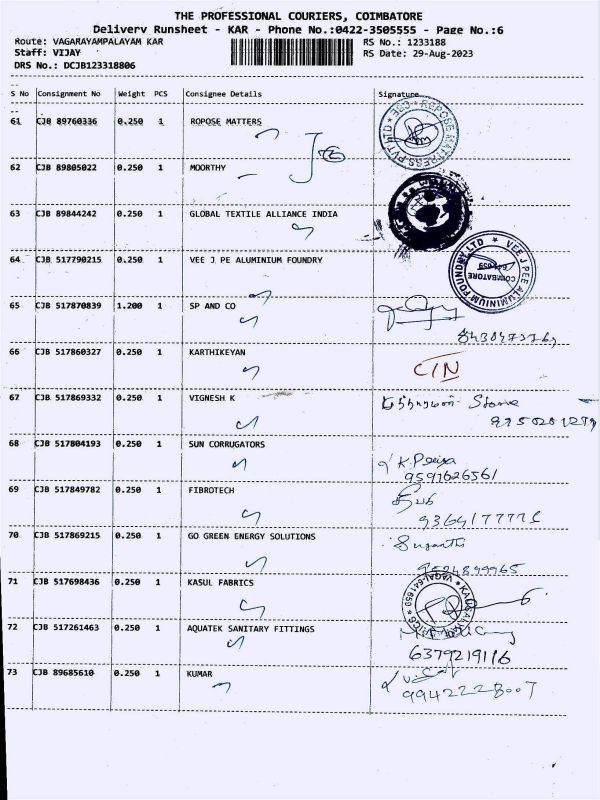 THE PROFESSIONAL COURIERS, COIMBATORE
Delivery Runsheet - KAR - Phone No.:0422-3505555 - Page No.:6
Route: VAGARAYAMPALAYAM KAR RS No.: 1233188
Staff: VIJAY RS Date: 29-Aug-2023
DRS No.: DCJB123318806
S No Consignment No Weight PCS Consignee Details Signature
61 CJB 89760336 0.250 1 ROPOSE MATTERS
62 CJB 89805022 0.250 1 MOORTHY
63 CJB 89844242 0.250 1 GLOBAL TEXTILE ALLIANCE INDIA
64 CJB 517790215 0.250 1 VEE J PE ALUMINIUM FOUNDRY
VEE J PEE ALUMINIUM FOUNDRY LTD
COIMBATORE
65 CJB 517870839 1.200 1 SP AND CO
66 CJB 517860327 0.250 1 KARTHIKEYAN
CTN
67 CJB 517869332 0.250 1 VIGNESH K
Store
68 CJB 517804193 0.250 1 SUN CORRUGATORS
K. Priya
9591626561
69 CJB 517849782 0.250 1 FIBROTECH
70 CJB 517869215 0.250 1 GO GREEN ENERGY SOLUTIONS
Suganthi
9524899965
71 CJB 517698436 0.250 1 KASUL FABRICS
72 CJB 517261463 0.250 1 AQUATEK SANITARY FITTINGS
6379219116
73 CJB 89685610 0.250 1 KUMAR
9942228007